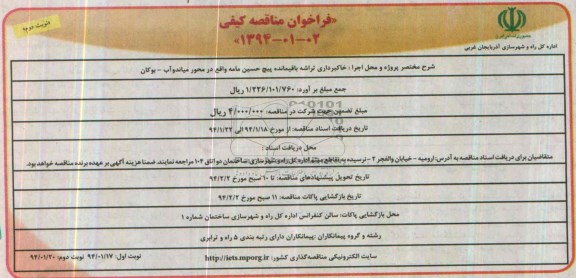 نوبت دوم
«فراخوان مناقصه کیفی
۰۲-۰۱-۱۳۹۴»
اداره کل راه و شهرسازی آذربایجان غربی
شرح مختصر پروژه و محل اجرا : خاکبرداری ترانشه باقیمانده پیچ حسین مامه واقع در محور میاندوآب - بوکان
جمع مبلغ بر آورد: ۱/۲۲۶/۱۰۱/۷۶۰ ریال
مبلغ تضمین جهت شرکت در مناقصه: ۴/۰۰۰/۰۰۰ ریال
تاریخ دریافت اسناد مناقصه: از مورخ ۹۴/۱/۱۸ الی ۹۴/۱/۲۲
محل دریافت اسناد :
متقاضیان برای دریافت اسناد مناقصه به آدرس: ارومیه - خیابان والفجر ۲ - نرسیده به تقاطع اداره کل راه و شهرسازی ساختمان دو اتاق ۱۰۲ مراجعه نمایند. ضمنا هزینه آگهی بر عهده برنده مناقصه خواهد بود.
تاریخ تحویل پیشنهادهای مناقصه: تا ۱۰ صبح مورخ ۹۴/۲/۲
تاریخ بازگشایی پاکات مناقصه: ۱۱ صبح مورخ ۹۴/۲/۲
محل بازگشایی پاکات: سالن کنفرانس اداره کل راه و شهرسازی ساختمان شماره ۱
رشته و گروه پیمانکاران :پیمانکاران دارای رتبه بندی ۵ راه و ترابری
سایت الکترونیکی مناقصه‌گذاری کشور: http://iets.mporg.ir نوبت اول: ۹۴/۰۱/۱۷ نوبت دوم: ۹۴/۰۱/۲۰